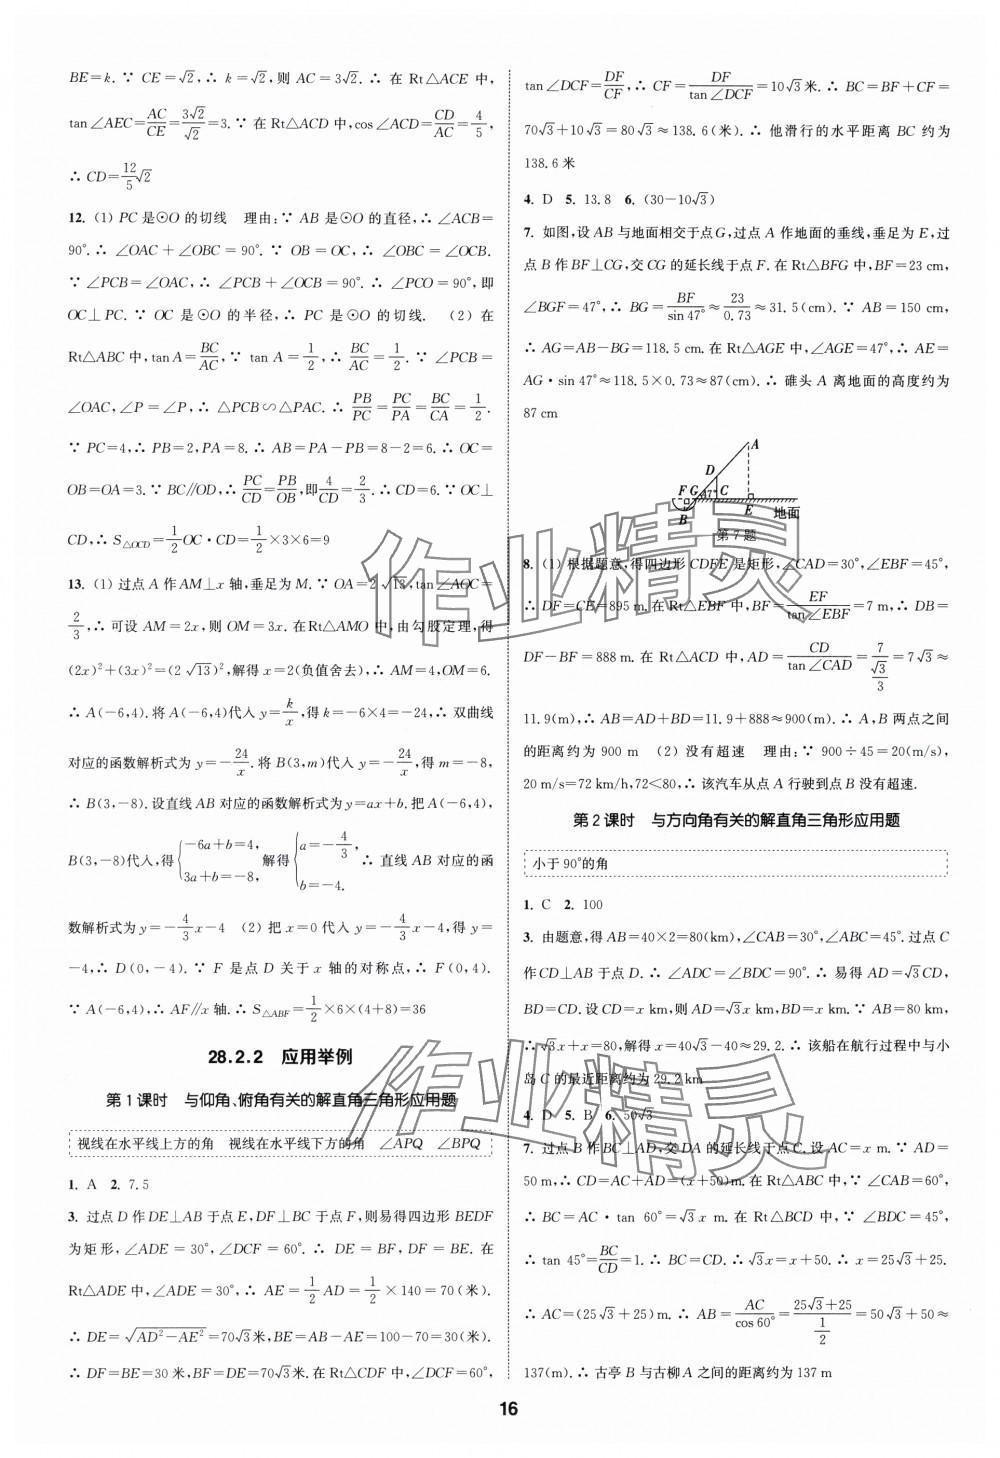 BE=k. ∵ CE=√2, ∴ k=√2, 则 AC=3√2. ∴ 在 Rt△ACE 中,
tan∠AEC=AC/CE=3√2/√2=3. ∵ 在 Rt△ACD 中, cos∠ACD=CD/AC=4/5,
∴ CD=12/5√2
12. (1) PC 是⊙O 的切线 理由: ∵ AB 是⊙O 的直径, ∴ ∠ACB=
90°. ∴ ∠OAC+∠OBC=90°. ∵ OB=OC, ∴ ∠OBC=∠OCB.
∵ ∠PCB=∠OAC, ∴ ∠PCB+∠OCB=90°. ∴ ∠PCO=90°, 即
OC⊥PC. ∵ OC 是⊙O 的半径, ∴ PC 是⊙O 的切线. (2) 在
Rt△ABC 中, tan A=BC/AC, ∵ tan A=1/2, ∴ BC/AC=1/2. ∵ ∠PCB=
∠OAC, ∠P=∠P, ∴ △PCB∽△PAC. ∴ PB/PC=PC/PA=BC/CA=1/2.
∵ PC=4, ∴ PB=2, PA=8. ∴ AB=PA-PB=8-2=6. ∴ OC=
OB=OA=3. ∵ BC∥OD, ∴ PC/CD=PB/OB, 即4/CD=2/3. ∴ CD=6. ∵ OC⊥
CD, ∴ S△OCD=1/2OC·CD=1/2×3×6=9
13. (1) 过点 A 作 AM⊥x 轴, 垂足为 M. ∵ OA=2√13, tan∠AOC=
2/3, ∴ 可设 AM=2x, 则 OM=3x. 在Rt△AMO 中, 由勾股定理, 得
(2x)²+(3x)²=(2√13)², 解得 x=2(负值舍去). ∴ AM=4, OM=6.
∴ A(-6,4). 将 A(-6,4)代入 y=k/x, 得 k=-6×4=-24, ∴ 双曲线
对应的函数解析式为 y=-24/x. 将 B(3,m)代入 y=-24/x, 得 m=-8,
∴ B(3,-8). 设直线 AB 对应的函数解析式为 y=ax+b. 把 A(-6,4),
B(3,-8)代入, 得{-6a+b=4, 3a+b=-8, 解得{a=-4/3, b=-4. ∴ 直线 AB 对应的函
数解析式为 y=-4/3x-4 (2) 把 x=0 代入 y=-4/3x-4, 得 y=
-4, ∴ D(0,-4). ∵ F 是点 D 关于 x 轴的对称点, ∴ F(0,4).
∵ A(-6,4), ∴ AF∥x 轴. ∴ S△ABF=1/2×6×(4+8)=36
28.2.2 应用举例
第1课时 与仰角、俯角有关的解直角三角形应用题
视线在水平线上方的角 视线在水平线下方的角 ∠APQ ∠BPQ
1. A 2. 7.5
3. 过点 D 作 DE⊥AB 于点 E, DF⊥BC 于点 F, 则易得四边形 BEDF
为矩形, ∠ADE=30°, ∠DCF=60°. ∴ DE=BF, DF=BE. 在
Rt△ADE 中, ∠ADE=30°, ∴ AE=1/2AD=1/2×140=70(米).
∴ DE=√(AD²-AE²)=70√3米, BE=AB-AE=100-70=30(米).
∴ DF=BE=30 米, BF=DE=70√3米. 在 Rt△CDF 中, ∠DCF=60°,
tan∠DCF=DF/CF, ∴ CF=DF/tan∠DCF=10√3米. ∴ BC=BF+CF=
70√3+10√3=80√3≈138.6(米). ∴ 他滑行的水平距离 BC 约为
138.6 米
4. D 5. 13.8 6. (30-10√3)
7. 如图, 设 AB 与地面相交于点G, 过点 A 作地面的垂线, 垂足为 E, 过
点 B 作 BF⊥CG, 交 CG 的延长线于点 F. 在 Rt△BFG 中, BF=23 cm,
∠BGF=47°, ∴ BG=BF/sin 47°≈23/0.73≈31.5(cm). ∵ AB=150 cm,
∴ AG=AB-BG=118.5 cm. 在 Rt△AGE 中, ∠AGE=47°, ∴ AE=
AG·sin 47°≈118.5×0.73≈87(cm). ∴ 碓头 A 离地面的高度约为
87 cm
A
D
F G 47° C
B E 地面
第7题
8. (1) 根据题意, 得四边形 CDFE 是矩形, ∠CAD=30°, ∠EBF=45°,
∴ DF=CE=895 m. 在 Rt△EBF 中, BF=EF/tan∠EBF=7 m, ∴ DB=
DF-BF=888 m. 在 Rt△ACD 中, AD=CD/tan∠CAD=7/(√3/3)=7√3≈
11.9(m), ∴ AB=AD+BD=11.9+888≈900(m). ∴ A,B 两点之间
的距离约为 900 m (2) 没有超速 理由: ∵ 900÷45=20(m/s),
20 m/s=72 km/h, 72<80, ∴ 该汽车从点 A 行驶到点 B 没有超速.
第2课时 与方向角有关的解直角三角形应用题
小于 90°的角
1. C 2. 100
3. 由题意, 得 AB=40×2=80(km), ∠CAB=30°, ∠ABC=45°. 过点 C
作CD⊥AB 于点 D. ∴ ∠ADC=∠BDC=90°. ∴ 易得 AD=√3CD,
BD=CD. 设 CD=x km, 则 AD=√3x km, BD=x km. ∵ AB=80 km,
∴ √3x+x=80, 解得 x=40√3-40≈29.2. ∴ 该船在航行过程中与小
岛 C 的最近距离约为 29.2 km
4. D 5. B 6. 50√3
7. 过点 B 作 BC⊥AD, 交 DA 的延长线于点 C. 设 AC=x m. ∵ AD=
50 m, ∴ CD=AC+AD=(x+50)m. 在 Rt△ABC 中, ∵ ∠CAB=60°,
∴ BC=AC·tan 60°=√3x m. 在 Rt△BCD 中, ∵ ∠BDC=45°,
∴ tan 45°=BC/CD=1. ∴ BC=CD. ∴ √3x=x+50. ∴ x=25√3+25.
∴ AC=(25√3+25)m. ∴ AB=AC/cos 60°=(25√3+25)/(1/2)=50√3+50≈
137(m). ∴ 古亭 B 与古柳 A 之间的距离约为 137 m
16
作业精灵
作业精灵